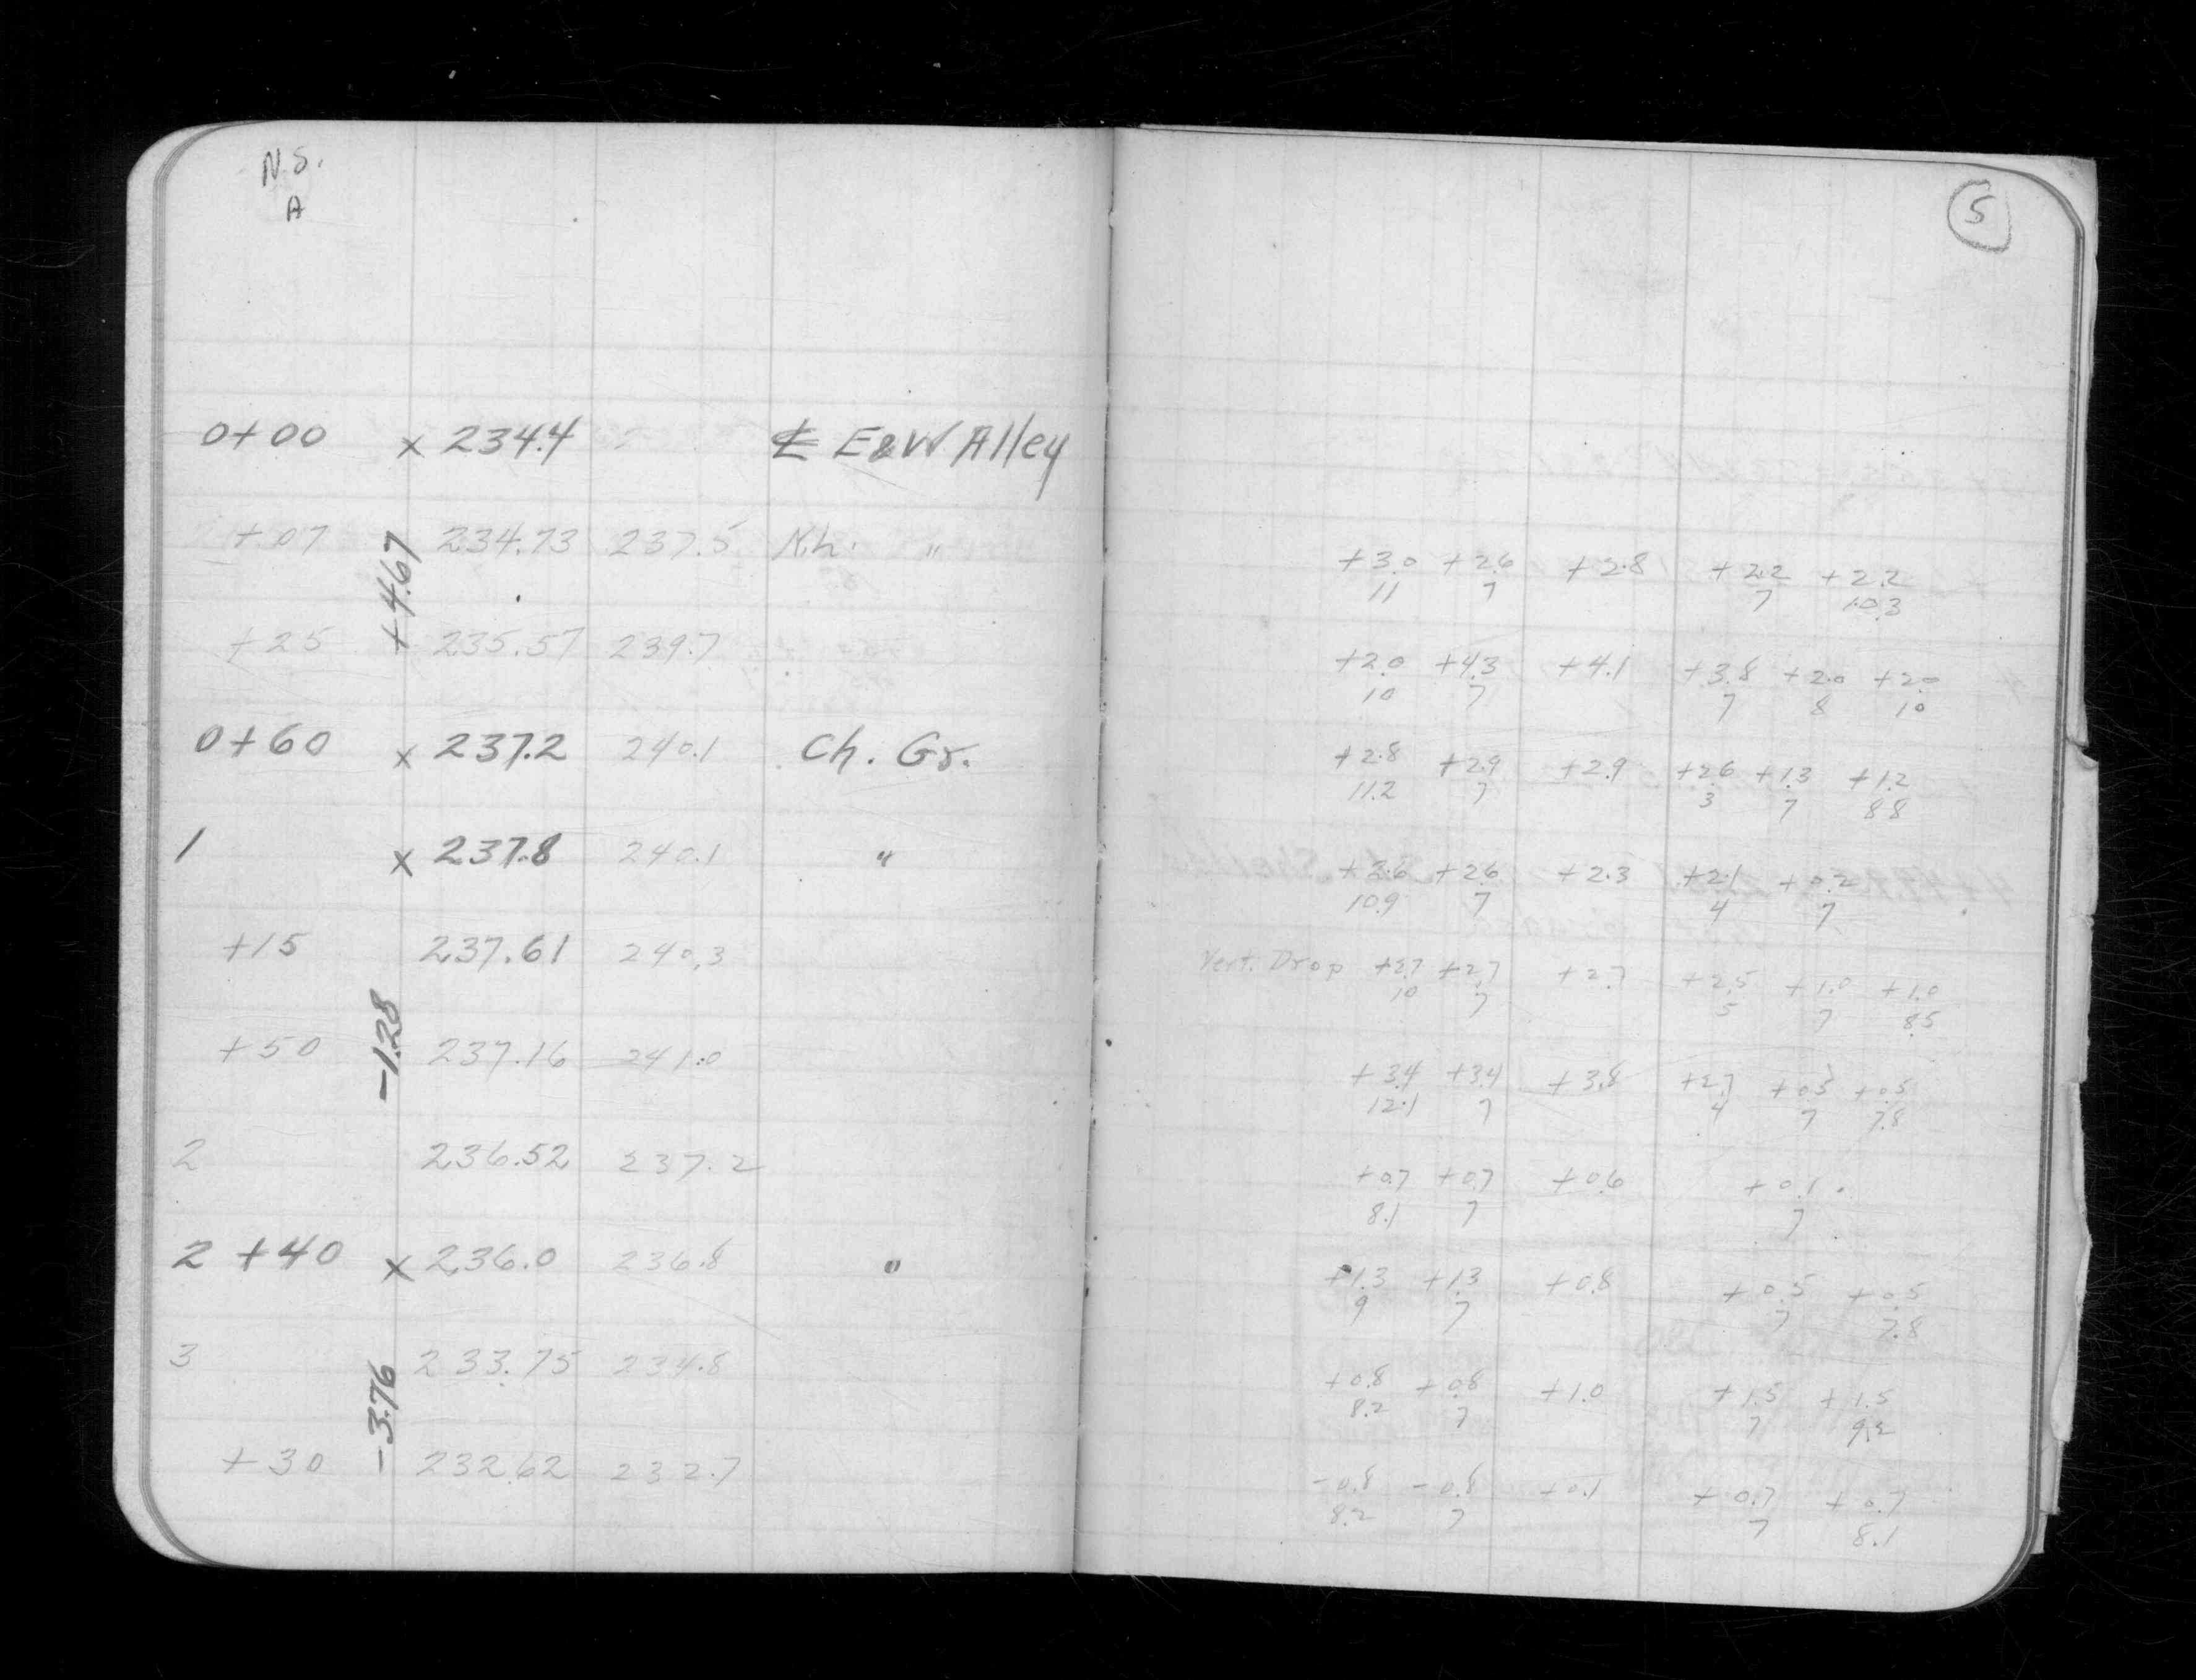 N.S.
A
5
0+00 x 234.4 ℄ E&W Alley
+07 234.73 237.5 N.L. "
+3.0 +2.6 +2.8 +2.2 +2.2
11 7 7 10.3
+4.67
+25 235.57 239.7
+2.0 +4.3 +4.1 +3.8 +2.0 +2.0
10 7 7 8 10
0+60 x 237.2 240.1 Ch. Gr.
+2.8 +2.9 +2.9 +2.6 +1.3 +1.2
11.2 7 3 7 8.8
1 x 237.8 240.1 "
+2.6 +2.6 +2.3 +2.1 +0.2
10.9 7 4 7
+15 237.61 240.3
Vert. Drop +2.7 +2.7 +2.7 +2.5 +1.0 +1.0
10 7 5 7 8.5
-1.28
+50 237.16 241.0
+3.4 +3.4 +3.8 +2.7 +0.5 +0.5
12.1 7 4 7 7.8
2 236.52 237.2
+0.7 +0.7 +0.6 +0.1
8.1 7 7
2 +40 x 236.0 236.8 "
+1.3 +1.3 +0.8 +0.5 +0.5
9 7 7 7.8
3 233.75 234.8
+0.8 +0.8 +1.0 +1.5 +1.5
8.2 7 7 9.2
-3.76
+30 232.62 232.7
-0.8 -0.8 +0.1 +0.7 +0.7
8.2 7 7 8.1